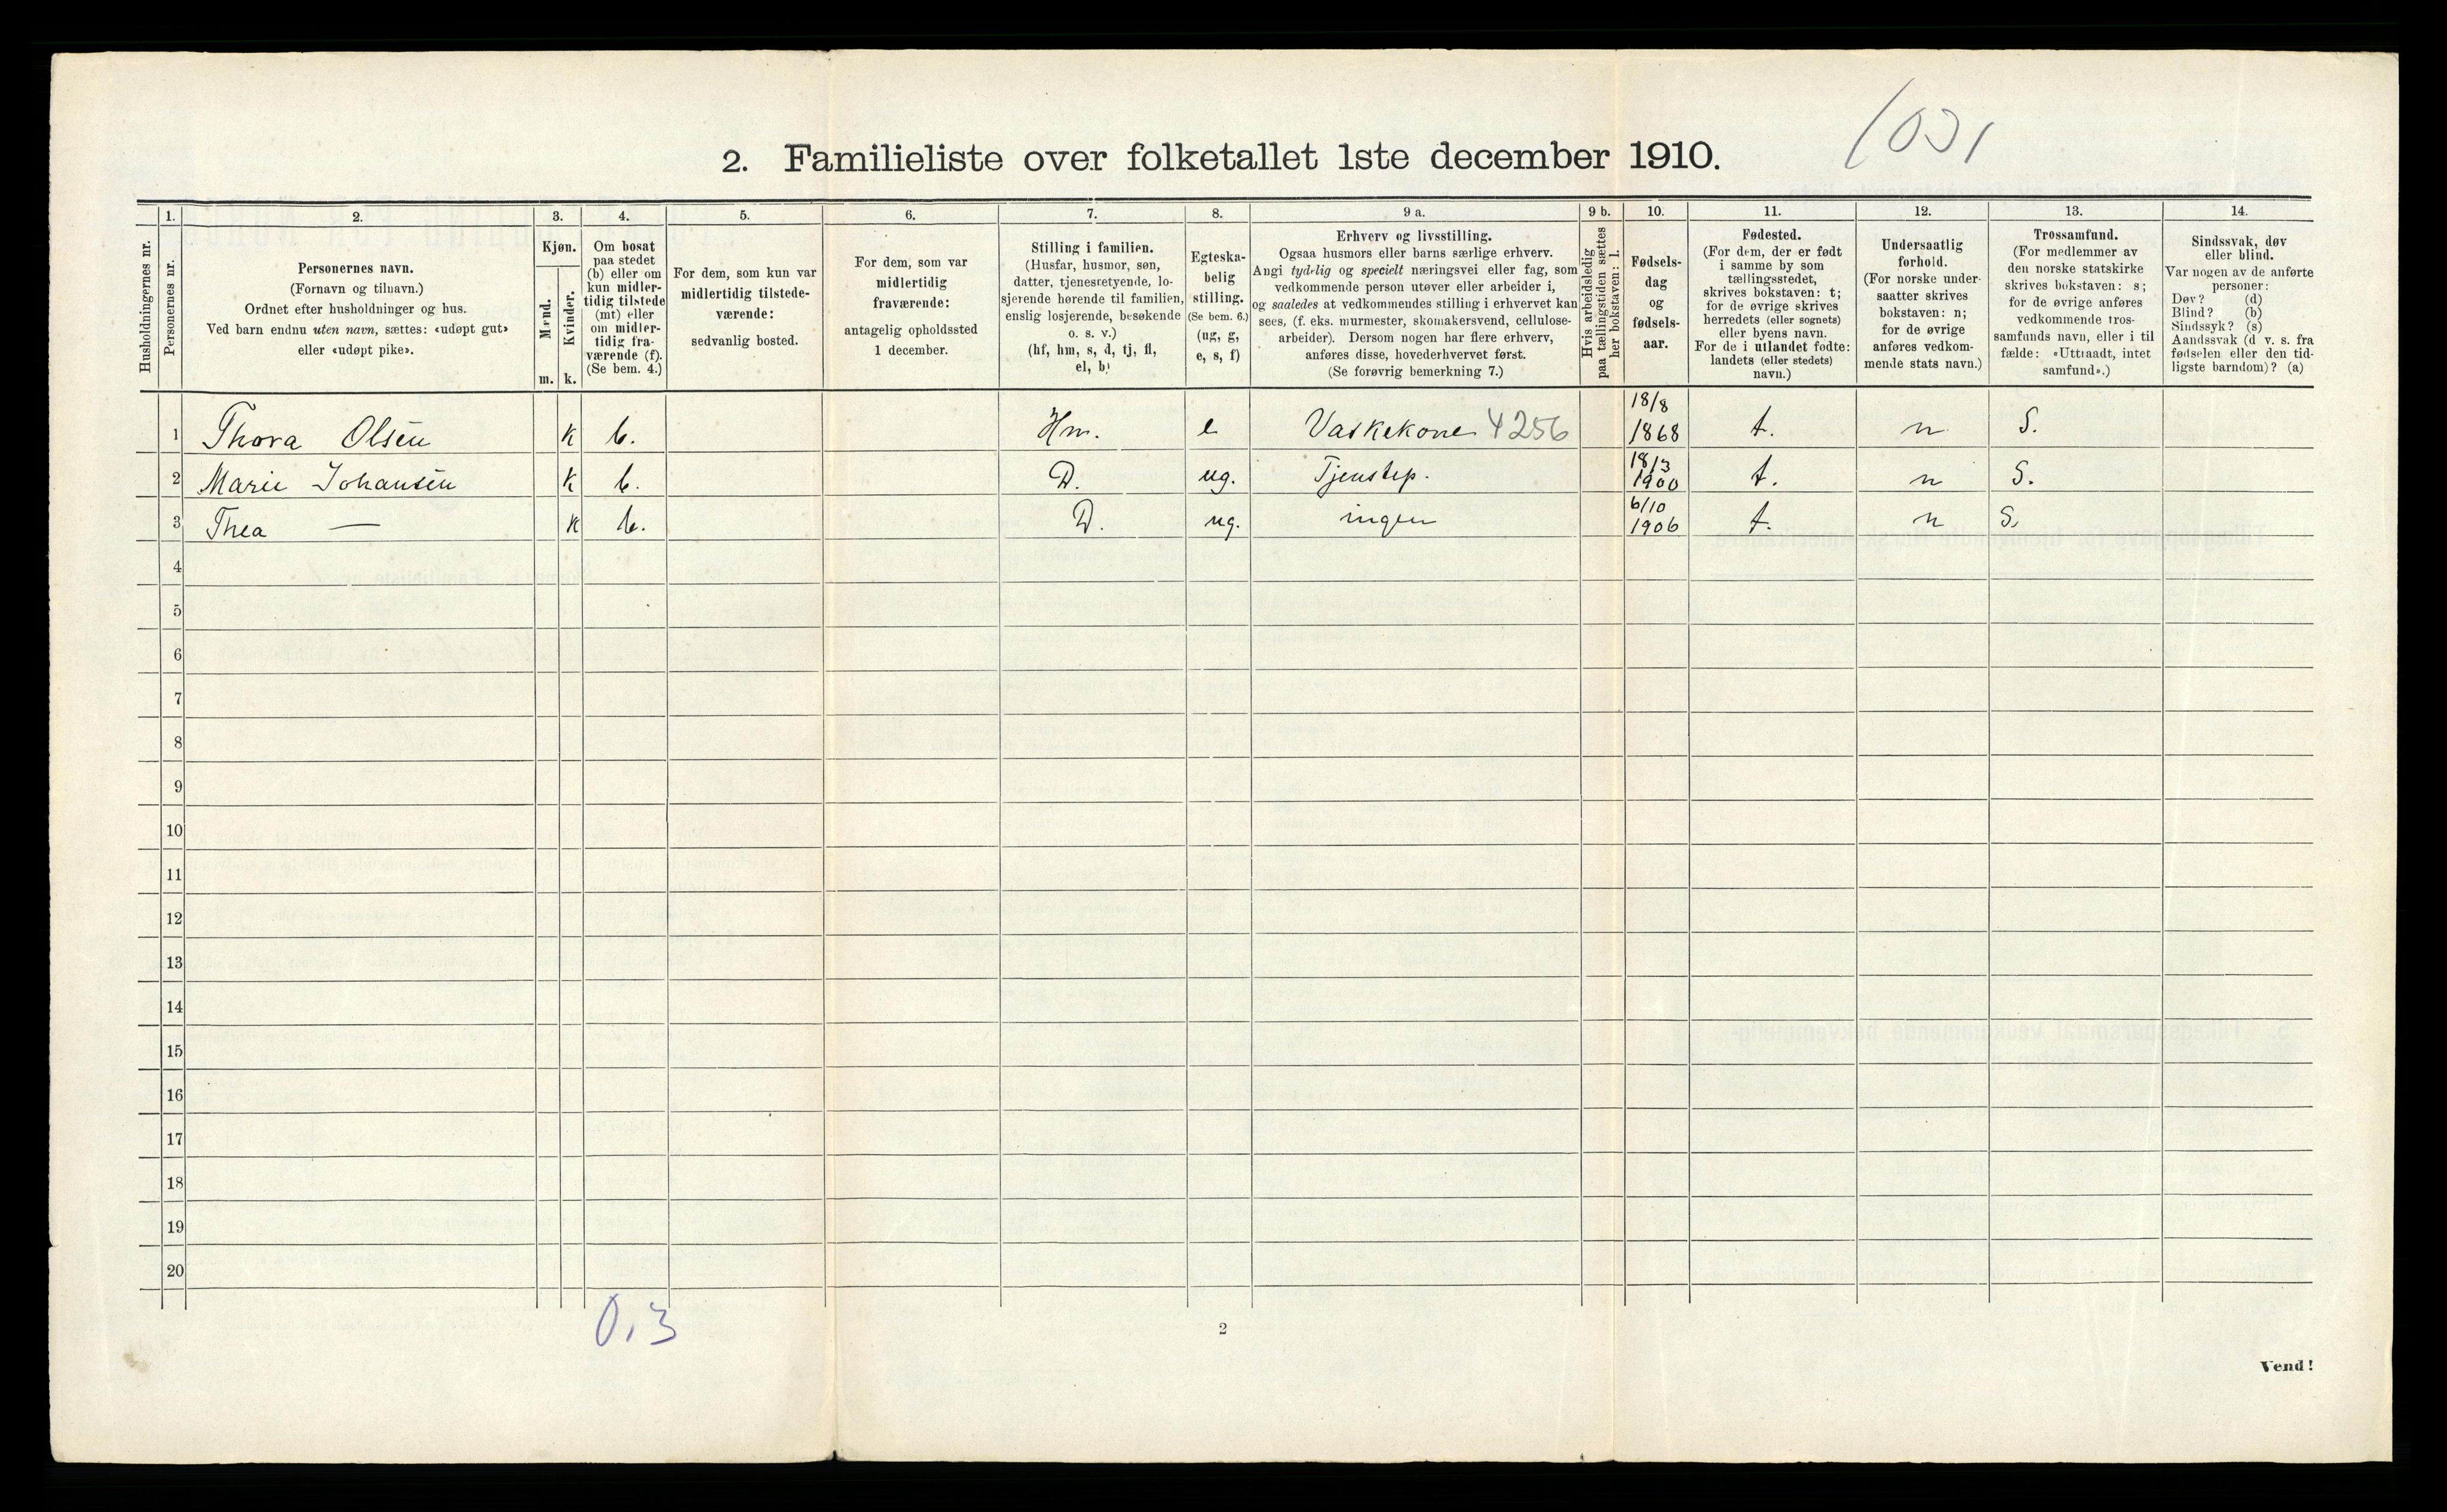 2. Familieliste over folketallet 1ste december 1910.
1. 2. 3. 4. 5. 6. 7. 8. 9 a. 9 b. 10. 11. 12. 13. 14.
Husholdningernes nr.
Personernes nr.
Personernes navn.
(Fornavn og tilnavn.)
Ordnet efter husholdninger og hus.
Ved barn endnu uten navn, sættes: «udøpt gut»
eller «udøpt pike».
Kjøn.
Mænd.
Kvinder.
m. k.
Om bosat
paa stedet
(b) eller om
kun midler-
tidig tilstede
(mt) eller
om midler-
tidig fra-
værende (f).
(Se bem. 4.)
For dem, som kun var
midlertidig tilstede-
værende:
sedvanlig bosted.
For dem, som var
midlertidig
fraværende:
antagelig opholdssted
1 december.
Stilling i familien.
(Husfar, husmor, søn,
datter, tjenestetyende, lo-
sjerende hørende til familien,
enslig losjerende, besøkende
o. s. v.)
(hf, hm, s, d, tj, fl,
el, b)
Egteska-
belig
stilling.
(Se bem. 6.)
(ug, g,
e, s, f)
Erhverv og livsstilling.
Ogsaa husmors eller barns særlige erhverv.
Angi tydelig og specielt næringsvei eller fag, som
vedkommende person utøver eller arbeider i,
og saaledes at vedkommendes stilling i erhvervet kan
sees, (f. eks. murmester, skomakersvend, cellulose-
arbeider). Dersom nogen har flere erhverv,
anføres disse, hovederhvervet først.
(Se forøvrig bemerkning 7.)
Hvis arbeidsledig
paa tællingstiden sættes
her bokstaven: l.
Fødsels-
dag
og
fødsels-
aar.
Fødested.
(For dem, der er født
i samme by som
tællingsstedet,
skrives bokstaven: t;
for de øvrige skrives
herredets (eller sognets)
eller byens navn.
For de i utlandet fødte:
landets (eller stedets)
navn.)
Undersaatlig
forhold.
(For norske under-
saatter skrives
bokstaven: n;
for de øvrige
anføres vedkom-
mende stats navn.)
Trossamfund.
(For medlemmer av
den norske statskirke
skrives bokstaven: s;
for de øvrige anføres
vedkommende tros-
samfunds navn, eller i til
fælde: «Uttraadt, intet
samfund».)
Sindssvak, døv
eller blind.
Var nogen av de anførte
personer:
Døv? (d)
Blind? (b)
Sindssyk? (s)
Aandssvak (d v. s. fra
fødselen eller den tid-
ligste barndom)? (a)
1 Thora Olsen K b. Hm. e Vaskekone 4256 18/8 1868 t. n S.
2 Marie Johansen K b. D. ug. Tjenstep. 18/3 1900 t. n S.
3 Thea — K b. D. ug. ingen 6/10 1906 t. n S.
4
5
6
7
8
9
10
11
12
13
14
15
16
17
18
19
20
0,3
2
Vend!